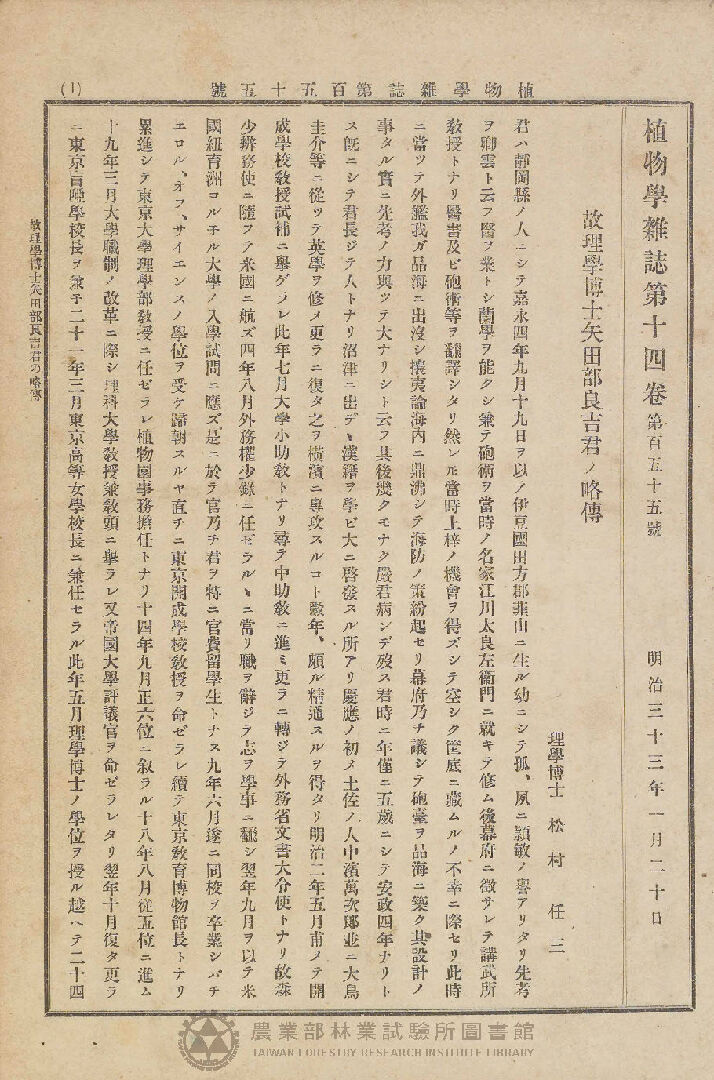 植物學雜誌第百五十五號
(1)
植物學雜誌第十四卷 第百五十五號 明治三十三年一月二十日
故理學博士矢田部良吉君ノ略傳
理學博士 松村任三
君ハ靜岡縣ノ人ニシテ嘉永四年九月十九日ヲ以ノ伊豆國田方郡韮山ニ生ル幼ニシテ孤、夙ニ穎敏ノ譽アリタリ先考
ヲ卿雲ト云フ醫ヲ業トシ蘭學ヲ能クシ兼テ砲術ヲ當時ノ名家江川太良左衞門ニ就キテ修ム後幕府ニ徴サレテ講武所
敎授トナリ醫書及ビ砲術等ヲ飜譯シタリ然レ𪜈當時上梓ノ機會ヲ得ズシテ空シク筐底ニ藏ムルノ不幸ニ際セリ此時
ニ當ツテ外艦我ガ品海ニ出沒シ攘夷論海內ニ鼎沸シテ海防ノ策紛起セリ幕府乃チ議シテ砲臺ヲ品海ニ築ク其設計ノ
事タル實ニ先考ノ力與ツテ大ナリシト云フ其後幾クモナク嚴君病シデ歿ス君時ニ年僅ニ五歲ニシテ安政四年ナリト
ス旣ニシテ君長ジテ人トナリ沼津ニ出デヽ漢籍ヲ學ビ大ニ啓發スル所アリ慶應ノ初メ土佐ノ人中濱萬次郞並ニ大鳥
圭介等ニ從ツテ英學ヲ修メ更ラニ復タ之ヲ橫濱ニ專攻スルコト數年、頗ル精通スルヲ得タリ明治二年五月甫メテ開
成學校敎授試補ニ擧ゲラレ此年七月大學小助敎トナリ尋テ中助敎ニ進ミ更ラニ轉ジテ外務省文書大令使トナリ故森
少辨務使ニ隨フテ米國ニ航ズ四年八月外務權少錄ニ任ゼラルヽニ當リ職ヲ辭シテ志ヲ學事ニ飜シ翌年九月ヲ以テ米
國紐育洲コルチル大學ノ入學試問ニ應ズ是ニ於テ官乃チ君ヲ特ニ官費留學生トナス九年六月遂ニ同校ヲ卒業シバチ
エロル、オフ、サイエンスノ學位ヲ受ケ歸朝スルヤ直チニ東京開成學校敎授ヲ命ゼラレ續テ東京敎育博物館長トナリ
累進シテ東京大學理學部敎授ニ任ゼラレ植物園事務擔任トナリ十四年九月正六位ニ敍ラル十八年八月從五位ニ進ム
十九年三月大學職制ノ改革ニ際シ理科大學敎授兼敎頭ニ擧ラレ又帝國大學評議官ヲ命ゼラレタリ翌年十月復タ更ラ
ニ東京盲啞學校長ヲ兼チ二十一年三月東京高等女學校長ニ兼任セラル此年五月理學博士ノ學位ヲ授ル越ヘテ二十四
故理學博士矢田部良吉君の略傳
農業部林業試驗所圖書館
TAIWAN FORESTRY RESEARCH INSTITUTE LIBRARY